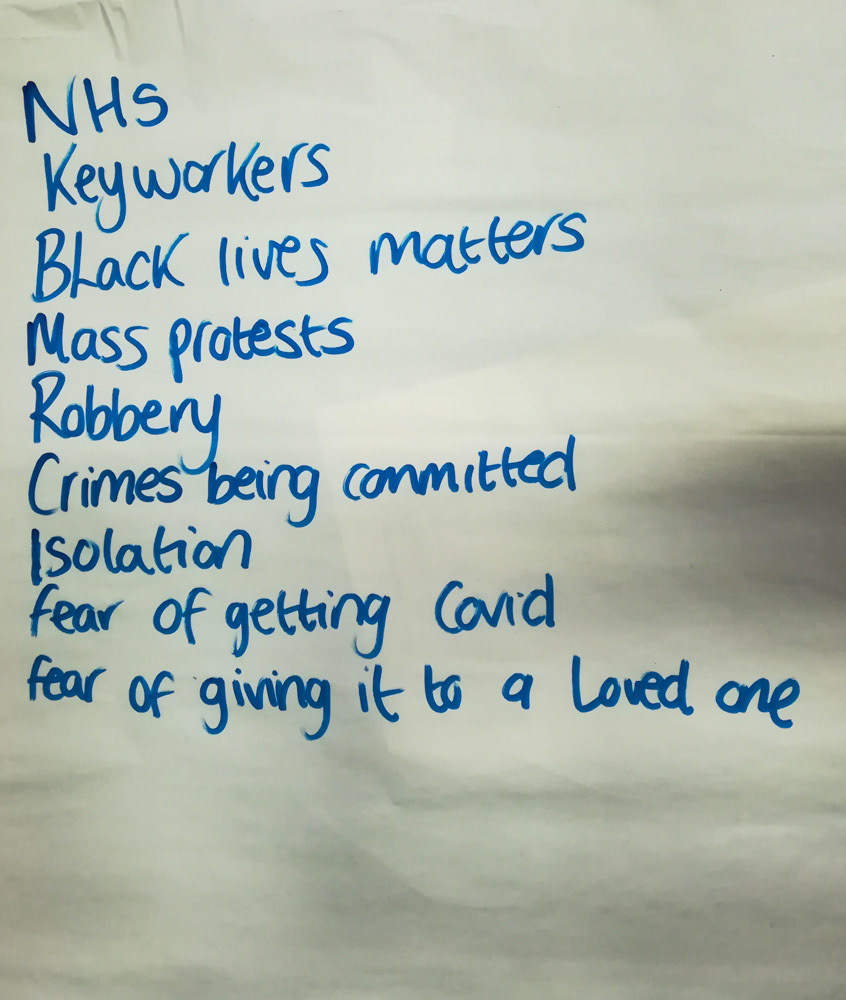 NHS
Keyworkers
Black lives matters
Mass protests
Robbery
Crimes being committed
Isolation
fear of getting Covid
fear of giving it to a loved one